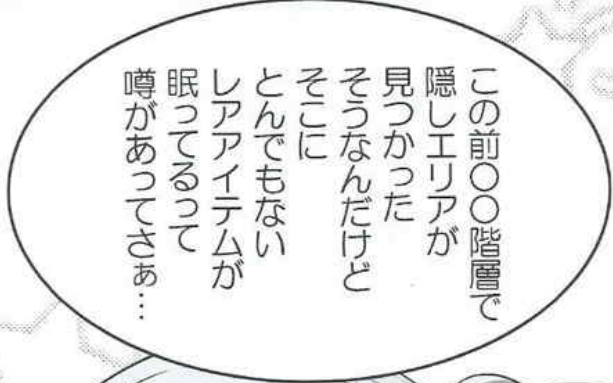 この前○○階層で
隠しエリアが
見つかった
そうなんだけど
そこに
とんでもない
レアアイテムが
眠ってるって
噂があってさぁ…